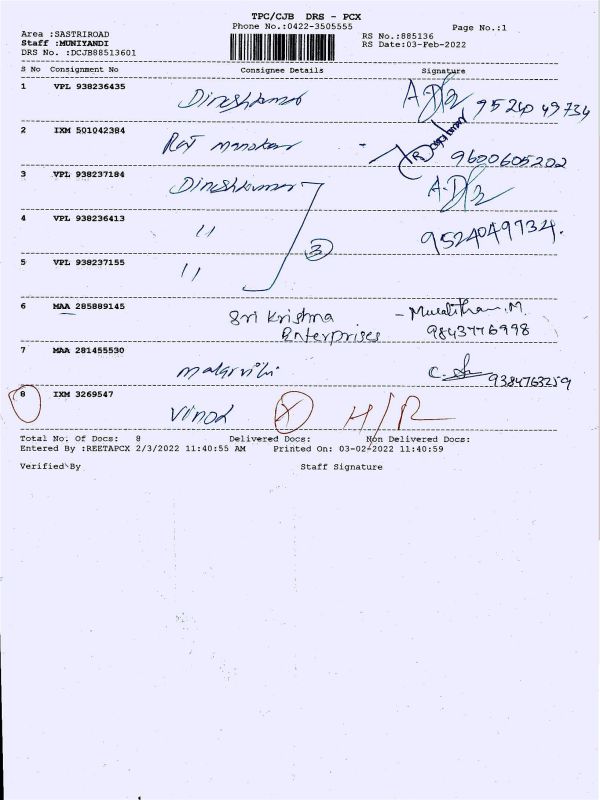 TPC/CJB DRS - PCX
Phone No.:0422-3505555
Page No.:1
Area :SASTRIROAD
Staff :MUNIYANDI
DRS No. :DCJB88513601
RS No.:885136
RS Date:03-Feb-2022
S No Consignment No Consignee Details Signature
1 VPL 938236435 Dineshkumar 9524049734
2 IXM 501042384 Raj manohar 9600605202
3 VPL 938237184 Dineshkumar
4 VPL 938236413 11 3 9524049734.
5 VPL 938237155 11
6 MAA 285889145 Sri Krishna - Muralitharan.M.
Enterprises 9843776998
7 MAA 281455530 malarvili 9384763259
8 IXM 3269547 Vinod X H/R
Total No. Of Docs: 8 Delivered Docs: Non Delivered Docs:
Entered By :REETAPCX 2/3/2022 11:40:55 AM Printed On: 03-02-2022 11:40:59
Verified By Staff Signature